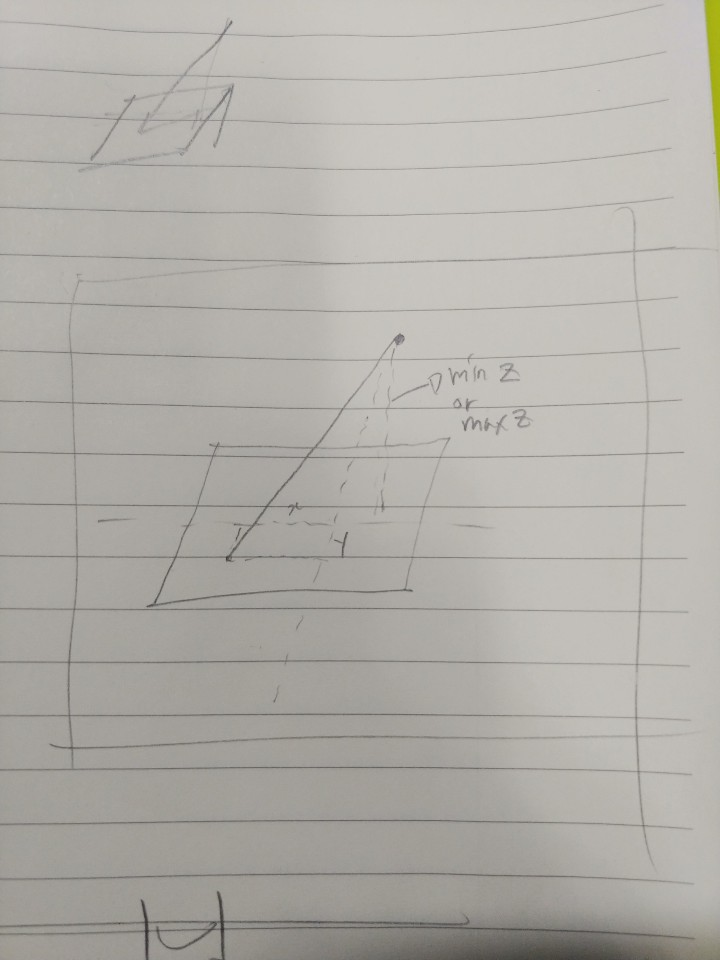 min z
or
max z
x
y